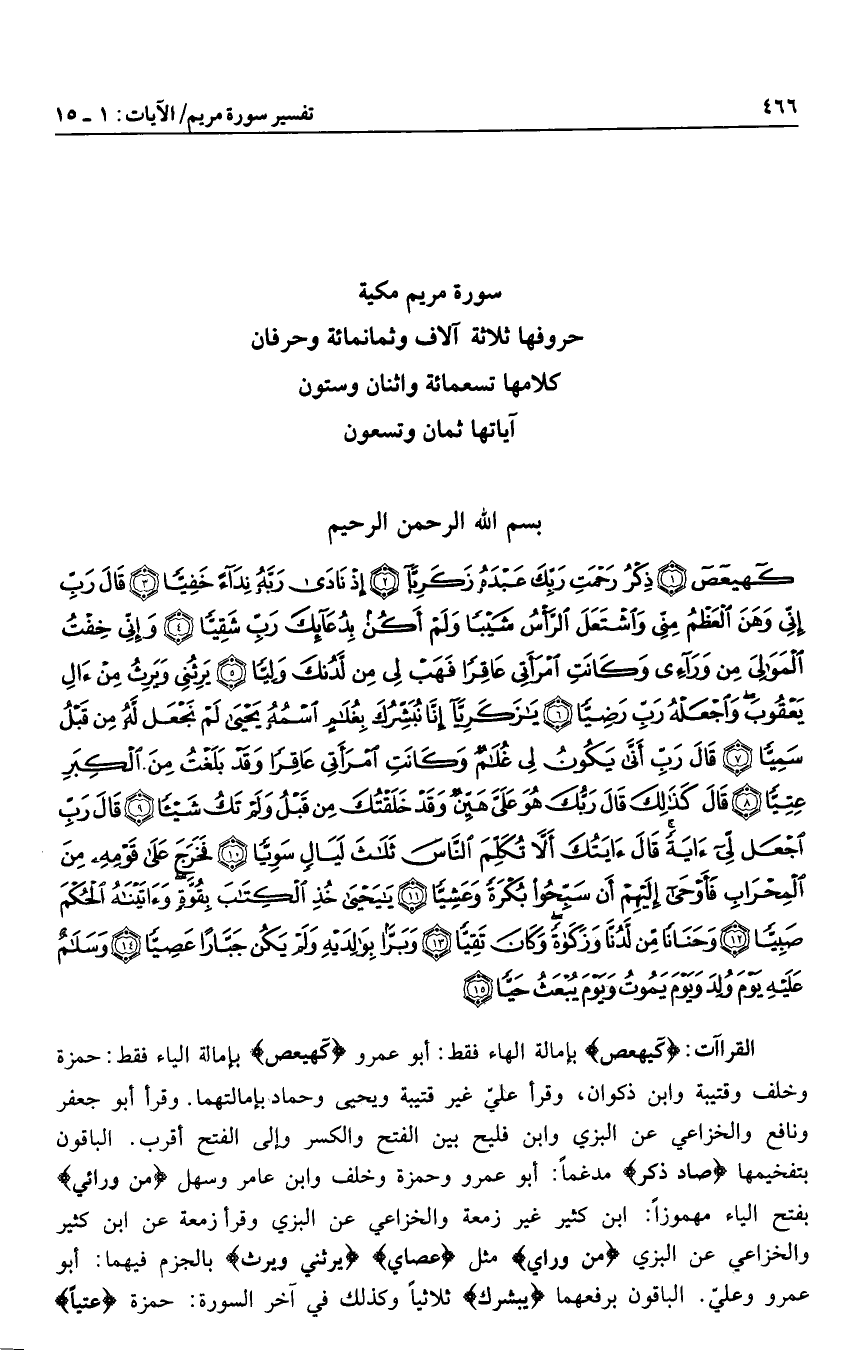 ٤٦٦ تفسير سورة مريم/ الآيات: ١ - ١٥
سورة مريم مكية
حروفها ثلاثة آلاف وثمانمائة وحرفان
كلامها تسعمائة واثنان وستون
آياتها ثمان وتسعون
بسم الله الرحمن الرحيم
كٓهيعٓصٓ ﴿١﴾ ذِكْرُ رَحْمَتِ رَبِّكَ عَبْدَهُۥ زَكَرِيَّآ ﴿٢﴾ إِذْ نَادَىٰ رَبَّهُۥ نِدَآءً خَفِيًّا ﴿٣﴾ قَالَ رَبِّ
إِنِّى وَهَنَ ٱلْعَظْمُ مِنِّى وَٱشْتَعَلَ ٱلرَّأْسُ شَيْبًا وَلَمْ أَكُنۢ بِدُعَآئِكَ رَبِّ شَقِيًّا ﴿٤﴾ وَإِنِّى خِفْتُ
ٱلْمَوَٰلِىَ مِن وَرَآءِى وَكَانَتِ ٱمْرَأَتِى عَاقِرًا فَهَبْ لِى مِن لَّدُنكَ وَلِيًّا ﴿٥﴾ يَرِثُنِى وَيَرِثُ مِنْ ءَالِ
يَعْقُوبَ ۖ وَٱجْعَلْهُ رَبِّ رَضِيًّا ﴿٦﴾ يَٰزَكَرِيَّآ إِنَّا نُبَشِّرُكَ بِغُلَٰمٍ ٱسْمُهُۥ يَحْيَىٰ لَمْ نَجْعَل لَّهُۥ مِن قَبْلُ
سَمِيًّا ﴿٧﴾ قَالَ رَبِّ أَنَّىٰ يَكُونُ لِى غُلَٰمٌ وَكَانَتِ ٱمْرَأَتِى عَاقِرًا وَقَدْ بَلَغْتُ مِنَ ٱلْكِبَرِ
عِتِيًّا ﴿٨﴾ قَالَ كَذَٰلِكَ قَالَ رَبُّكَ هُوَ عَلَىَّ هَيِّنٌ وَقَدْ خَلَقْتُكَ مِن قَبْلُ وَلَمْ تَكُ شَيْـًٔا ﴿٩﴾ قَالَ رَبِّ
ٱجْعَل لِّىٓ ءَايَةً ۚ قَالَ ءَايَتُكَ أَلَّا تُكَلِّمَ ٱلنَّاسَ ثَلَٰثَ لَيَالٍ سَوِيًّا ﴿١٠﴾ فَخَرَجَ عَلَىٰ قَوْمِهِۦ مِنَ
ٱلْمِحْرَابِ فَأَوْحَىٰٓ إِلَيْهِمْ أَن سَبِّحُوا۟ بُكْرَةً وَعَشِيًّا ﴿١١﴾ يَٰيَحْيَىٰ خُذِ ٱلْكِتَٰبَ بِقُوَّةٍ ۖ وَءَاتَيْنَٰهُ ٱلْحُكْمَ
صَبِيًّا ﴿١٢﴾ وَحَنَانًا مِّن لَّدُنَّا وَزَكَوٰةً ۖ وَكَانَ تَقِيًّا ﴿١٣﴾ وَبَرًّۢا بِوَٰلِدَيْهِ وَلَمْ يَكُن جَبَّارًا عَصِيًّا ﴿١٤﴾ وَسَلَٰمٌ
عَلَيْهِ يَوْمَ وُلِدَ وَيَوْمَ يَمُوتُ وَيَوْمَ يُبْعَثُ حَيًّا ﴿١٥﴾
القراآت: ﴿كهيعص﴾ بإمالة الهاء فقط: أبو عمرو ﴿كهيعص﴾ بإمالة الياء فقط: حمزة
وخلف وقتيبة وابن ذكوان، وقرأ عليّ غير قتيبة ويحيى وحماد بإمالتهما. وقرأ أبو جعفر
ونافع والخزاعي عن البزي وابن فليح بين الفتح والكسر وإلى الفتح أقرب. الباقون
بتفخيمها ﴿صاد ذكر﴾ مدغماً: أبو عمرو وحمزة وخلف وابن عامر وسهل ﴿من ورائي﴾
بفتح الياء مهموزاً: ابن كثير غير زمعة والخزاعي عن البزي وقرأ زمعة عن ابن كثير
والخزاعي عن البزي ﴿من وراي﴾ مثل ﴿عصاي﴾ ﴿يرثني ويرث﴾ بالجزم فيهما: أبو
عمرو وعليّ. الباقون برفعهما ﴿يبشرك﴾ ثلاثياً وكذلك في آخر السورة: حمزة ﴿عتياً﴾